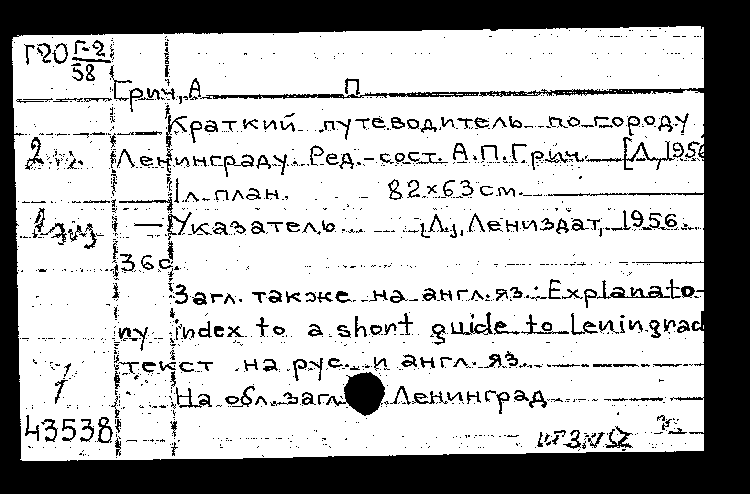 Г20 Г-2
58
Грич, А П
Краткий путеводитель по городу
Ленинграду. Ред.-сост. А.П.Грич. [Л., 1956
1 л. план. 82×63 см.
— Указатель [Л.], Лениздат, 1956.
36 с.
Загл. также на англ. яз.: Explanato-
ry index to a short guide to Leningrad
текст на рус. и англ. яз.
На обл. загл. Ленинград
43538